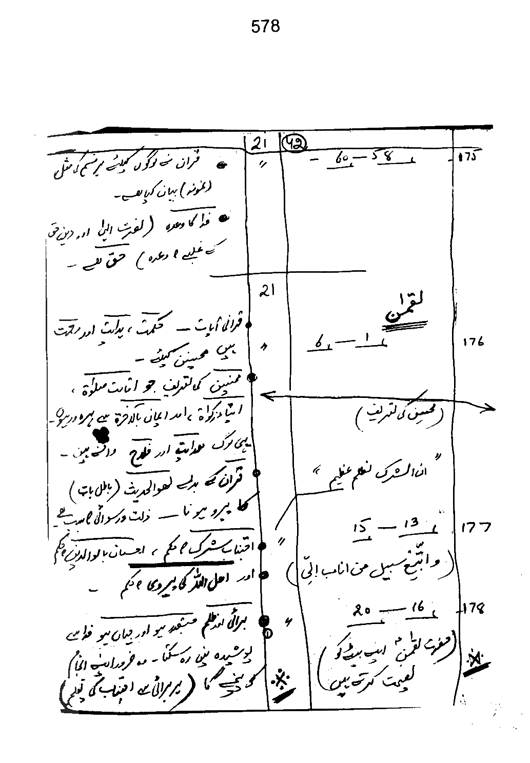 578
21 42
175
58 — 60
"
قرآن نے لوگوں کیلئے ہر قسم کی مثل
(نمونہ) بیان کیا ہے۔
خدا کا وعدہ (نصرت الہی اور دین حق
کے غلبے کا وعدہ) حق ہے۔
21
لقمٰن
176
1 — 6
"
قرآنی آیات — حکمت، ہدایت اور رحمت
ہیں محسنین کیلئے۔
محسنین کی تعریف جو اقامت صلوٰة،
ایتاء زکواة، اور ایمان بالآخرة سے بہرہ ور ہوں۔
یہی لوگ ہدایت اور فلاح والے ہیں۔
(محسنین کی تعریف)
قرآن کے بدلے لھو الحدیث (باطل بات)
کا پیرو ہونا — ذلت و رسوائی کا سبب ہے
"ان الشرک لظلم عظیم"
177
13 — 15
"
(واتّبع سبیل من اناب الیّ)
اجتناب شرک کا حکم، احسان بالوالدین کا حکم
اور اھل اللہ کی پیروی کا حکم۔
178
16 — 20
"
(حضرت لقمٰن اپنے بیٹے کو
نصیحت کرتے ہیں)
برائی اور ظلم ہو اور جہاں ہو خدا سے
پوشیدہ نہیں رہ سکتا۔ وہ ضرور اپنے انجام
کو پہنچے گا (ہر برائی سے اجتناب کی تعلیم)